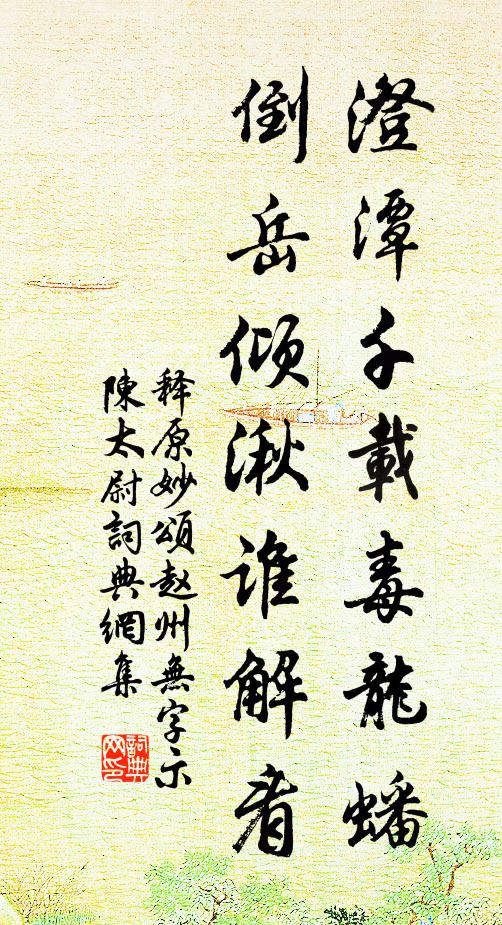 澄潭千載毒龍蟠
倒岳傾湫谁解看
释原妙頌赵州無字示
陳太尉詞典網集
詞典
网印